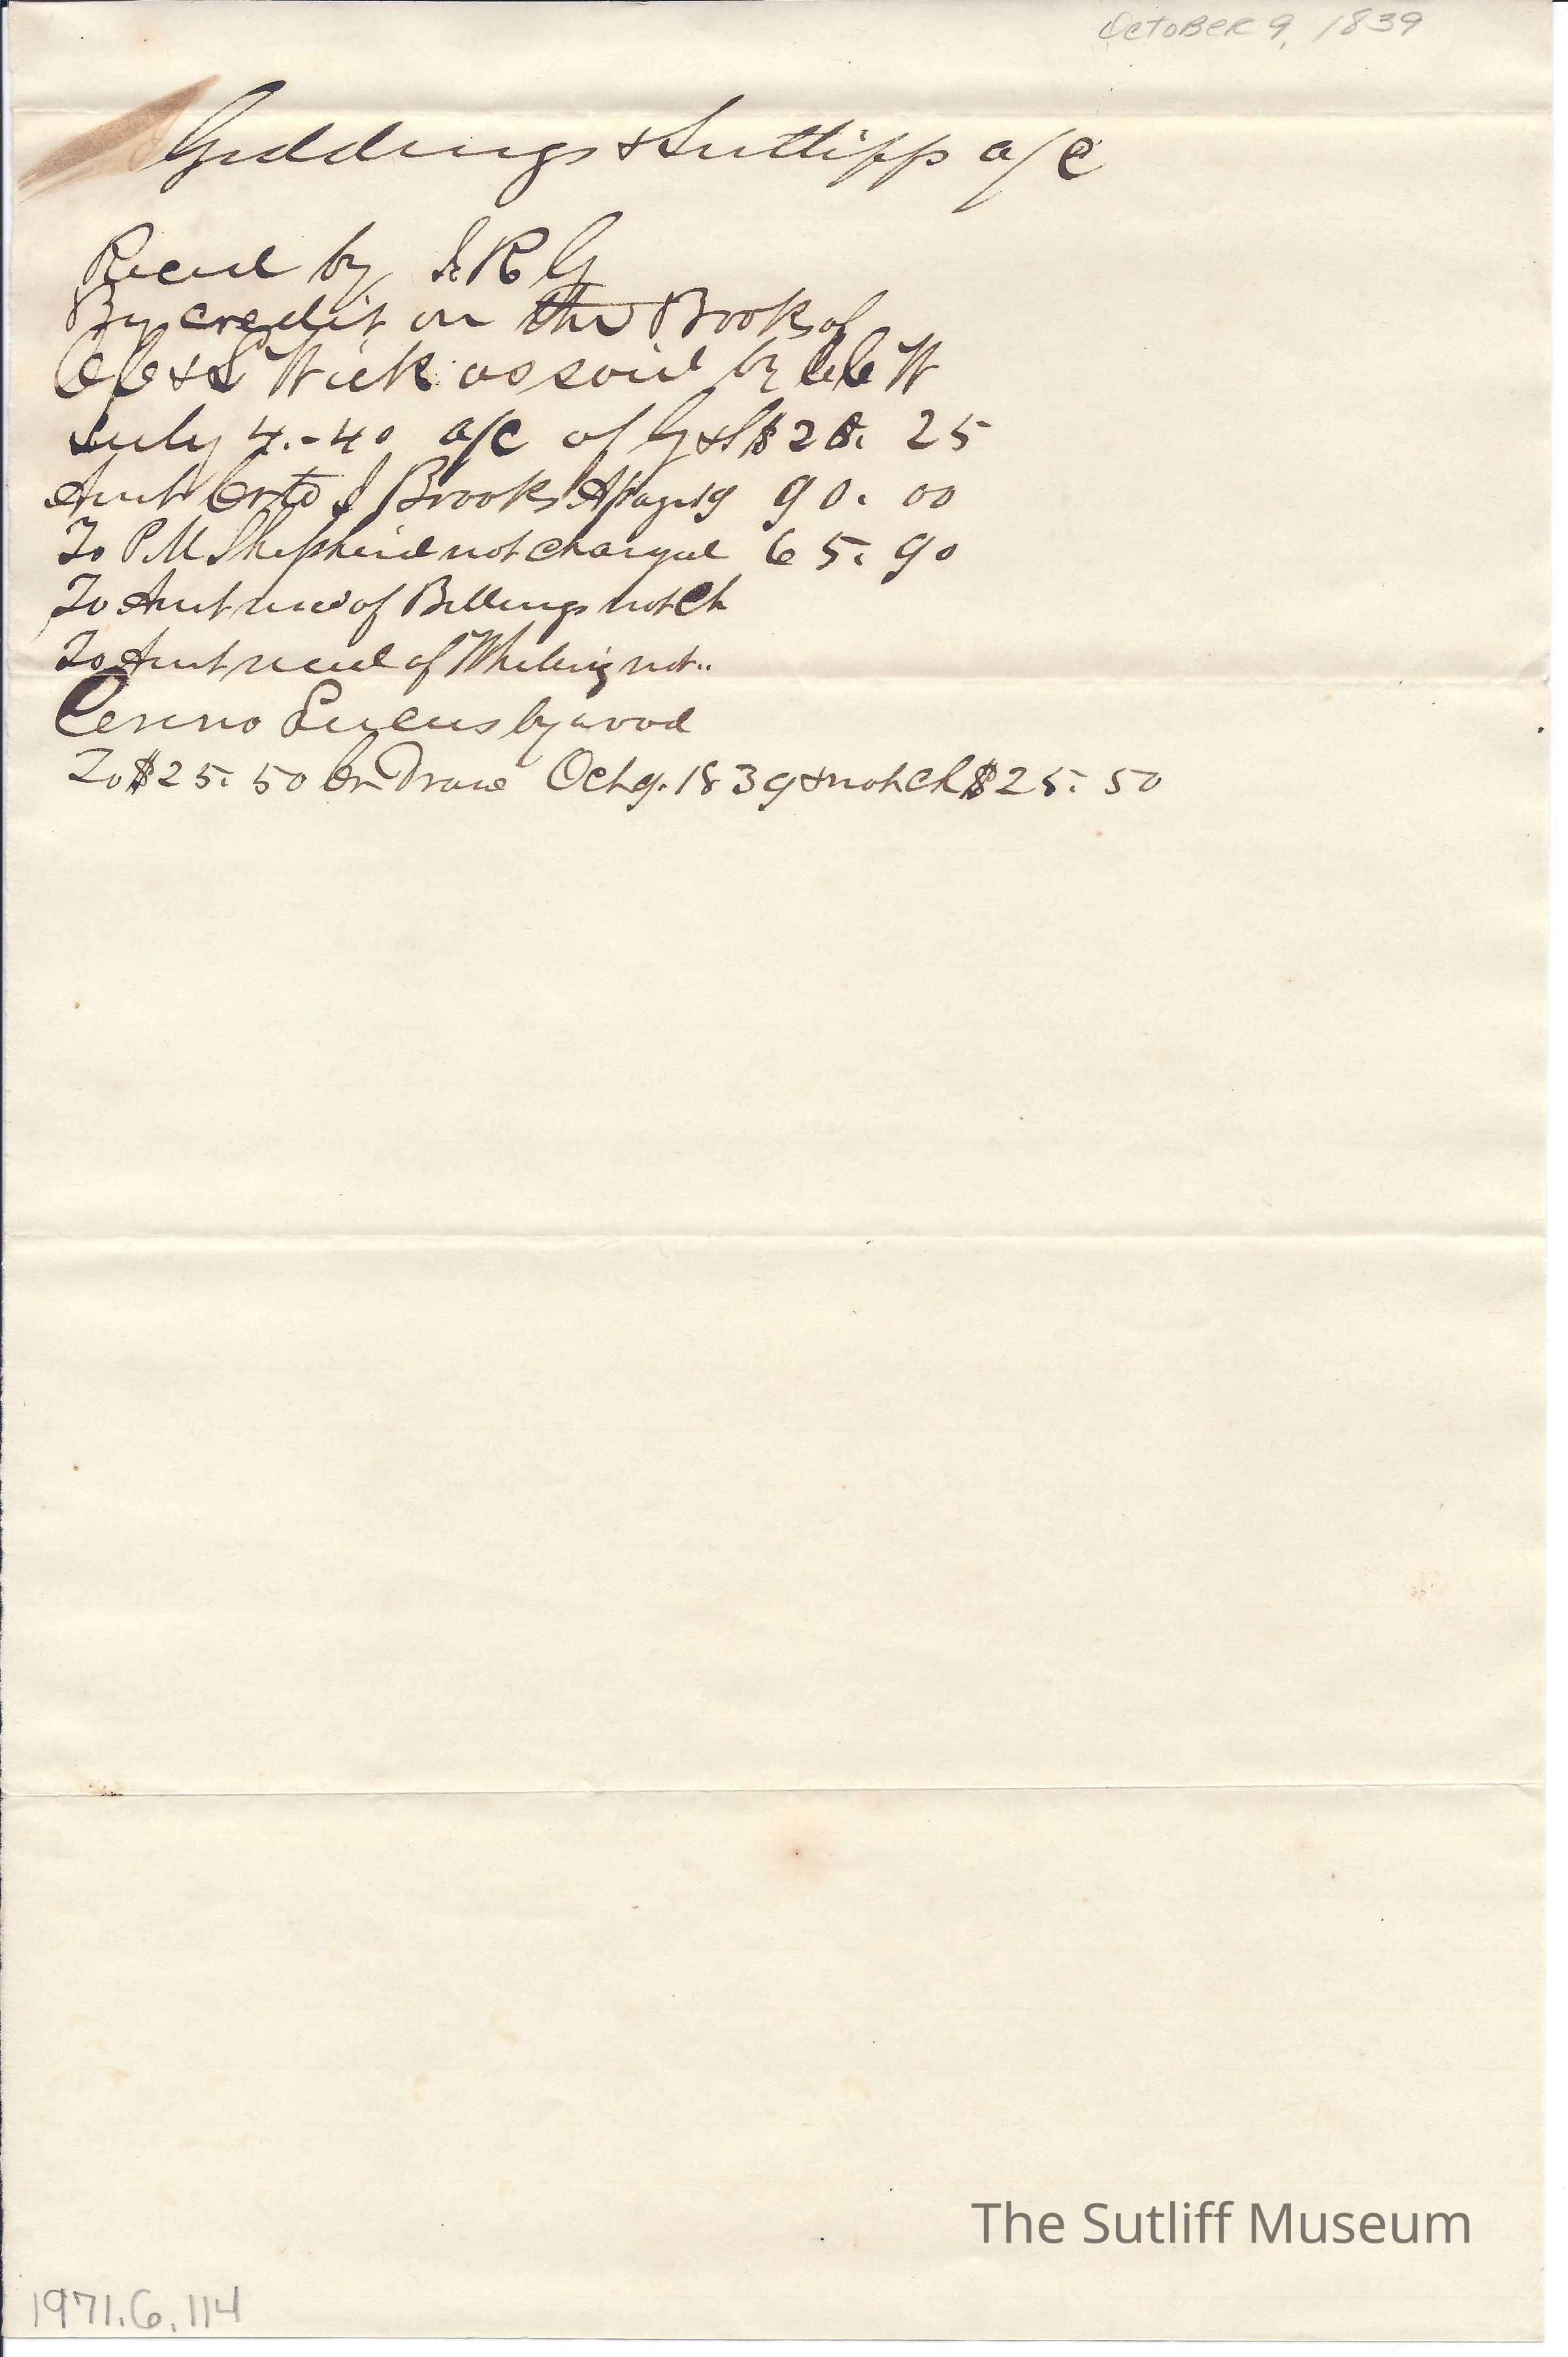 OCTOBER 9, 1839
Giddings & Sutliff a/c
Recud by J R G
By credit on the Book of
C C & L Wick as said by C C W
July 4.-40 a/c of G & S $28. 25
Amt Cr to J Brooks 90. 00
To P M Shepherd not charged 65. 90
To Amt recd of Billings not Ch
To Amt recud of Whiting not ..
by wood
To $25. 50 Oct 9. 1839 & not Ch $25. 50
The Sutliff Museum
1971.6.114